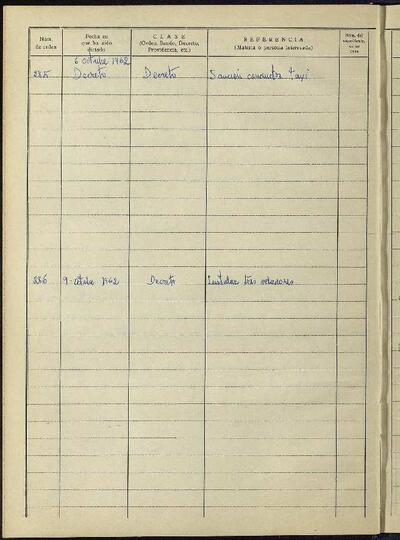 Núm. de orden
Fecha en que ha sido dictado
CLASE (Orden, Bando, Decreto, Providencia, etc.)
REFERENCIA (Materia o persona interesada)
Núm. del
6 octubre 1962
285 Decreto. Decreto Sanción conductor taxi
286 9-octubre 1962 Decreto Instalar tres